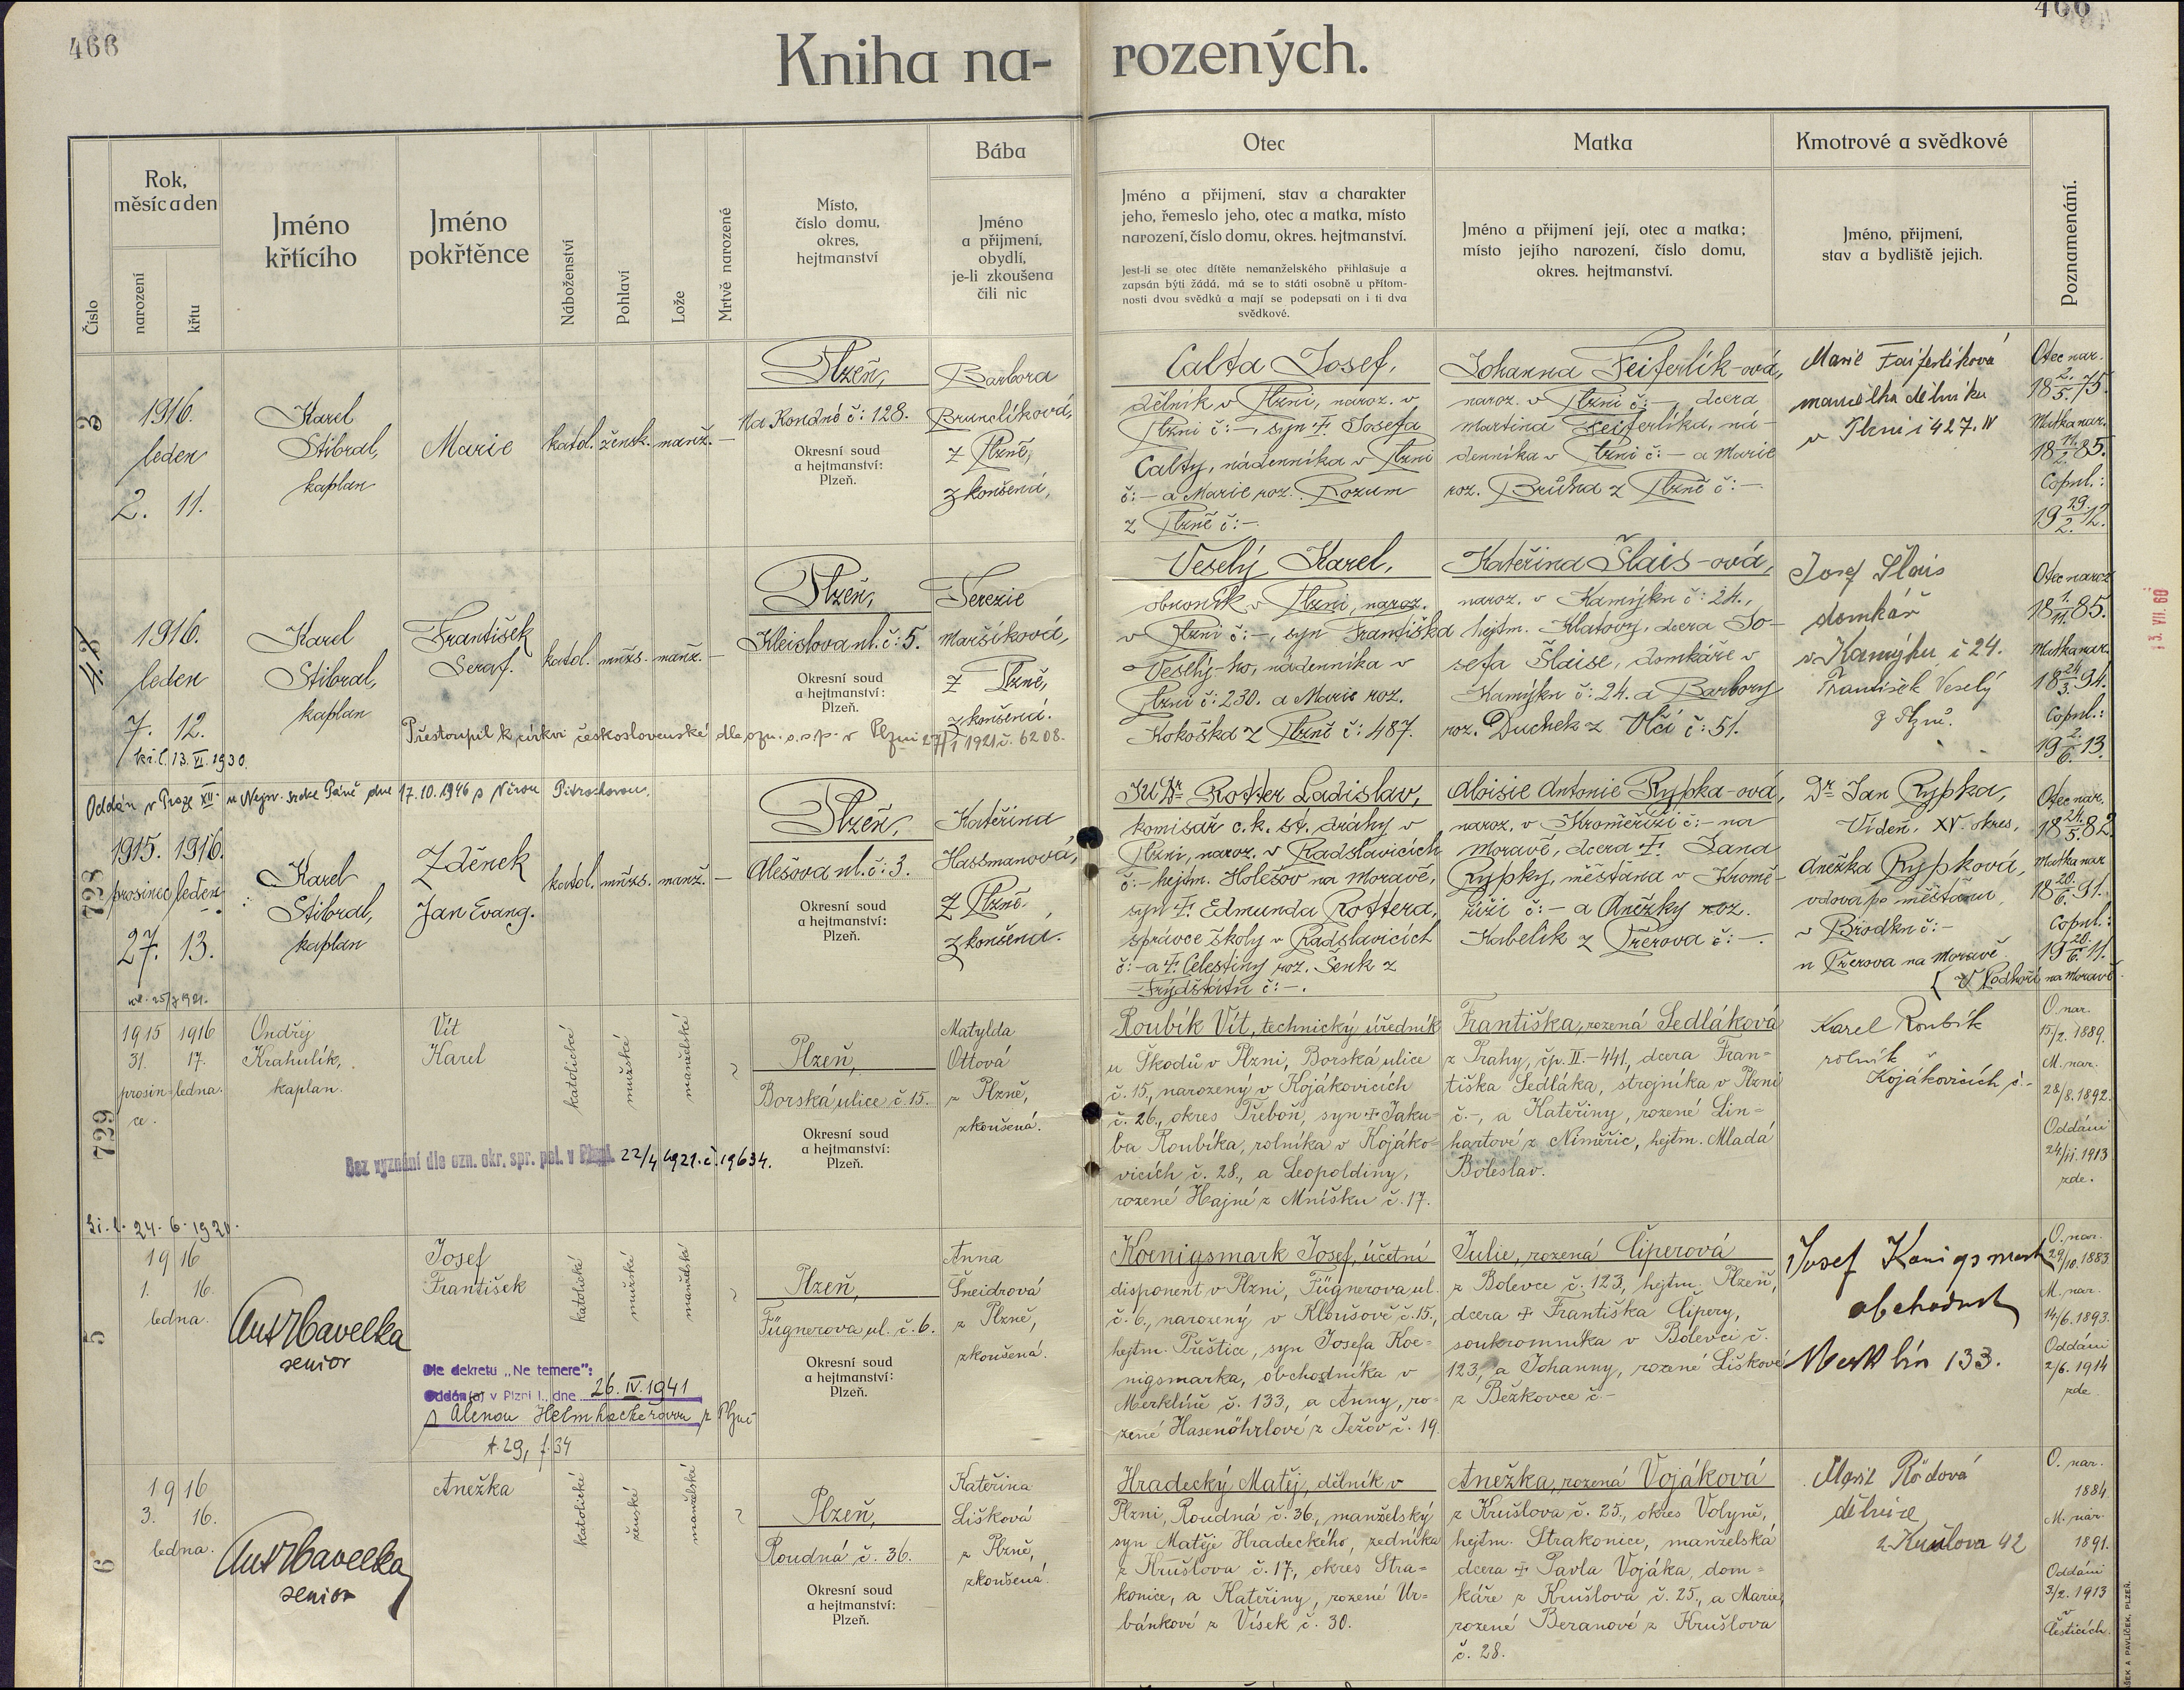 466
466
Kniha na-
rozených.
Číslo
Rok,
měsíc a den
narození
křtu
Jméno
křtícího
Jméno
pokřtěnce
Náboženství
Pohlaví
Lože
Mrtvě narozené
Místo,
číslo domu,
okres,
hejtmanství
Bába
Jméno
a přijmení,
obydlí,
je-li zkoušena
čili nic
Otec
Jméno a přijmení, stav a charakter
jeho, řemeslo jeho, otec a matka, místo
narození, číslo domu, okres. hejtmanství.
Jest-li se otec dítěte nemanželského přihlašuje a
zapsán býti žádá, má se to státi osobně u přítom-
nosti dvou svědků a mají se podepsati on i ti dva
svědkové.
Matka
Jméno a přijmení její, otec a matka;
místo jejího narození, číslo domu,
okres. hejtmanství.
Kmotrové a svědkové
Jméno, přijmení,
stav a bydliště jejich.
Poznamenání.
3
1916.
leden
2. 11.
Karel
Stibral,
kaplan
Marie
katol. žensk. manž. —
Plzeň,
Na Roudné č: 128.
Okresní soud
a hejtmanství:
Plzeň.
Barbora
Brunclíková,
z Plzně,
zkoušená,
Calta Josef,
dělník v Plzni, naroz. v
Plzni č: —, syn †. Josefa
Calty, nádenníka v Plzni
č: — a Marie roz. Rozum
z Plzně č: —.
Johanna Feiferlík-ová,
naroz. v Plzni č: —, dcera
Martina Feiferlíka, ná-
denníka v Plzni č: — a Marie
roz. Brůha z Plzně č: —.
Marie Faiferlíková
manželka dělníka
v Plzni č 427. IV
Otec nar.
18 2./5. 75.
Matka nar.
18 11./2. 85.
Copul.:
19 19./2. 12.
1916.
leden
7. 12.
kř. l. 13. VI. 1930.
Karel
Stibral,
kaplan
František
Seraf.
katol. mužs. manž. —
Plzeň,
Kleislova ul. č: 5.
Okresní soud
a hejtmanství:
Plzeň.
Terezie
Maršíková,
z Plzně,
zkoušená.
Přestoupil k církvi československé dle ozn. o. s. p. v Plzni 27/1 1921 č. 6208.
Veselý Karel,
obuvník v Plzni, naroz.
v Plzni č: —, syn Františka
Veselý-ho, nádenníka v
Plzni č: 230. a Marie roz.
Kokoška z Plzně č: 487.
Kateřina Šlais-ová,
naroz. v Kamýku č: 24.,
hejtm. Klatovy, dcera Jo-
sefa Šlaise, domkáře v
Kamýku č: 24. a Barbory
roz. Duchek z Vlčí č: 51.
Josef Šlais
domkář
v Kamýku č 24.
František Veselý
z Plzně.
Otec naroz.
18 1./11. 85.
Matka nar.
18 24./3. 94.
Copul.:
19 2./6. 13.
13. VII. 60
Oddán v Praze XII. u Nejsv. Srdce Páně dne 17.10.1946 s Věrou Pitrochovou.
728
1915. 1916.
prosinec leden
27. 13.
Karel
Stibral,
kaplan
Zděnek
Jan Evang.
katol. mužs. manž. —
Plzeň,
Alešova ul. č: 3.
Okresní soud
a hejtmanství:
Plzeň.
Kateřina
Hassmanová,
z Plzně,
zkoušená.
JUDr Rotter Ladislav,
komisař c. k. st. dráhy v
Plzni, naroz. v Radslavicích
č: — hejtm. Holešov na Moravě,
syn †. Edmunda Rottera,
správce školy v Radslavicích
č: — a †. Celestiny roz. Šenk z
Frýdštátu č: —.
Aloisie Antonie Rypka-ová,
naroz. v Kroměříži č: — na
Moravě, dcera †. Jana
Rypky, měštana v Kromě-
říži č: — a Anežky roz.
Kabelík z Přerova č: —.
Dr Jan Rypka,
Vídeň, XV. okres,
Anežka Rypková,
vdova po měštanu
v Brodku č: —
u Přerova na Moravě
Otec nar.
18 24./5. 82.
Matka nar.
18 20./6. 91.
Copul.:
19 20./6. 11.
v Podhoří na Moravě
729
1915 1916
31. 17.
prosin- ledna.
ce.
Ondřej
Krahulík,
kaplan.
Vít
Karel
katolické
mužské
manželské
Plzeň,
Borská ulice č. 15.
Okresní soud
a hejtmanství:
Plzeň.
Matylda
Ottová
z Plzně,
zkoušená.
Bez vyznání dle ozn. okr. spr. pol. v Plzni 22/4 1921. č. 19634.
Roubík Vít, technický úředník
u Škodů v Plzni, Borská ulice
č. 15, narozený v Kojákovicích
č. 26., okres Třeboň, syn † Jaku-
ba Roubíka, rolníka v Kojáko-
vicích č. 28., a Leopoldiny,
rozené Hajné z Mníšku č. 17.
Františka, rozená Sedláková
z Prahy, čp. II.-441, dcera Fran-
tiška Sedláka, strojníka v Plzni
č. -, a Kateřiny, rozené Lin-
hartové z Niměřic, hejtm. Mladá
Boleslav.
Karel Roubík
rolník
Kojákovicích č. -
O. nar.
15/2. 1889.
M. nar.
28/8. 1892.
Oddáni
24/11. 1913
zde.
kř. l. 24. 6. 1920.
5
1916
1. 16.
ledna.
Ant Havelka
senior
Josef
František
katolické
mužské
manželské
Plzeň,
Fügnerova ul. č. 6.
Okresní soud
a hejtmanství:
Plzeň.
Anna
Šneidrová
z Plzně,
zkoušená.
Dle dekretu „Ne temere“:
Oddán(a) v Plzni I., dne 26. IV. 1941
s Alenou Helmhackerovou z Plzně
t. 29, f. 34
Koenigsmark Josef, účetní
disponent v Plzni, Fügnerova ul.
č. 6., narozený v Kloušově č. 15.,
hejtm. Přeštice, syn Josefa Koe-
nigsmarka, obchodníka v
Merklíně č. 133, a Anny, ro-
zené Hasenöhrlové z Ježov č. 19.
Julie, rozená Čiperová
z Bolevce č. 123, hejtm. Plzeň,
dcera † Františka Čipery,
soukromníka v Bolevci č.
123, a Johanny, rozené Liškové
z Běžkovce č. -
Josef Königsmark
obchodník
Merklín 133.
O. nar.
29/10. 1883.
M. nar.
14/6. 1893.
Oddáni
2/6. 1914
zde.
6
1916
3. 16.
ledna.
Ant Havelka
senior
Anežka
katolické
ženské
manželské
Plzeň,
Roudná č. 36.
Okresní soud
a hejtmanství:
Plzeň.
Kateřina
Lišková
z Plzně,
zkoušená.
Hradecký Matěj, dělník v
Plzni, Roudná č. 36., manželský
syn Matěje Hradeckého, zedníka
z Krušlova č. 17., okres Stra-
konice, a Kateřiny, rozené Ur-
bánkové z Vísek č. 30.
Anežka, rozená Vojáková
z Krušlova č. 25., okres Volyně,
hejtm. Strakonice, manželská
dcera † Pavla Vojáka, dom-
káře z Krušlova č. 25., a Marie,
rozené Beranové z Krušlova
č. 28.
Marie Rödová
dělnice
z Krušlova 42
O. nar.
1884.
M. nar.
1891.
Oddáni
3/2. 1913
v
Česticích.
A PAVLÍČEK, PLZEŇ.